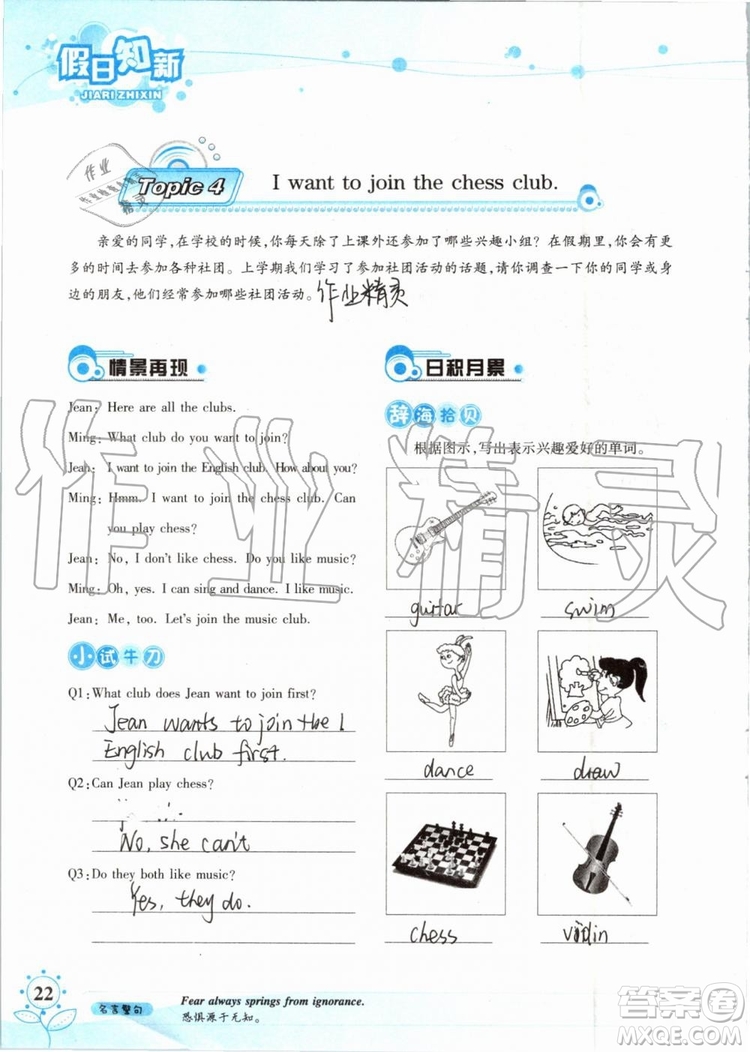 假日知新
JIARI ZHIXIN
Topic 4
I want to join the chess club.
亲爱的同学，在学校的时候，你每天除了上课外还参加了哪些兴趣小组？在假期里，你有更
多的时间去参加各种社团。上学期我们学习了参加社团活动的话题，请你调查一下你的同学或身
边的朋友，他们经常参加哪些社团活动。作业精灵
情景再现
Jean: Here are all the clubs.
Ming: What club do you want to join?
Jean: I want to join the English club. How about you?
Ming: Hmm. I want to join the chess club. Can
you play chess?
Jean: No, I don't like chess. Do you like music?
Ming: Oh, yes. I can sing and dance. I like music.
Jean: Me, too. Let's join the music club.
小试牛刀
Q1: What club does Jean want to join first?
Jean wants to join the
English club first.
Q2: Can Jean play chess?
No, she can't
Q3: Do they both like music?
Yes, they do.
日积月累
辞海拾贝
根据图示，写出表示兴趣爱好的单词。
guitar
swim
dance
draw
chess
violin
22
名言警句
Fear always springs from ignorance.
恐惧源于无知。
作业精灵
答案圈
MXQE.COM